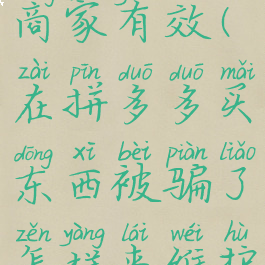 商家有效(
zài pīn duō duō mǎi
在拼多多买
dōng xī bèi piàn liǎo
东西被骗了
zěn yàng lái wéi hù
怎样来维护